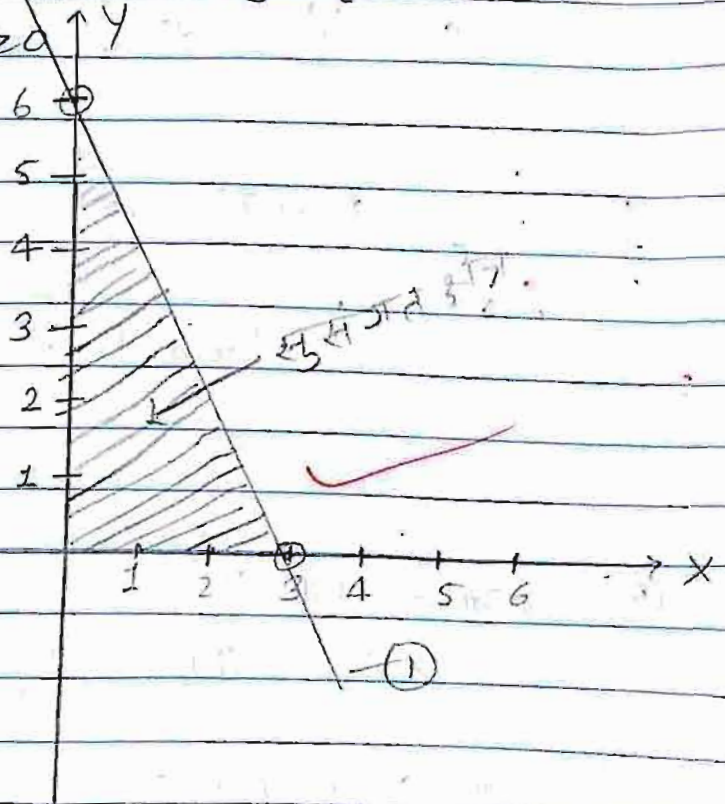 Y
≥0
6
5
4
3
2
1
सुसंगत क्षेत्र
1 2 3 4 5 6 X
①